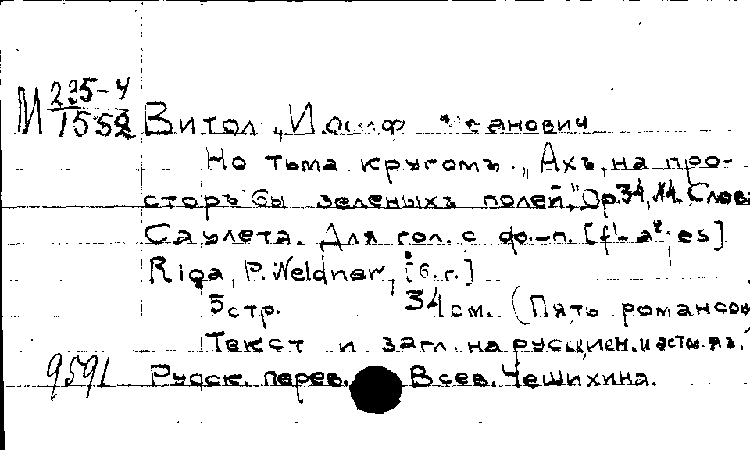 М 235-4
1552
Витол, Иосиф Иванович
Но тьма кругомъ. „Ахъ, на про-
сторъ бы зеленыхъ полей," Op. 34, №4. Слова
Саулета. Для гол. с ф.-п. [f¹-a²; es]
Riga, P. Neldner, [б. г.]
5 стр. 34 см. (Пять романсов
Текст и загл. на русск., нем. и
Русск. перев. Всев. Чешихина.
9591